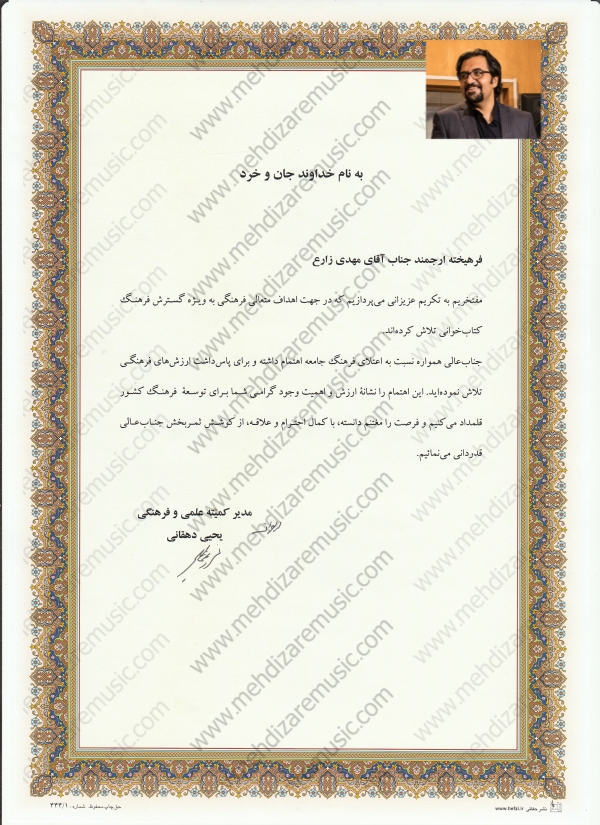 به نام خداوند جان و خرد
فرهیخته ارجمند جناب آقای مهدی زارع
مفتخریم به تکریم عزیزانی می‌پردازیم که در جهت اهداف متعالی فرهنگی به ویژه گسترش فرهنگ
کتاب‌خوانی تلاش کرده‌اند.
جناب‌عالی همواره نسبت به اعتلای فرهنگ جامعه اهتمام داشته و برای پاس‌داشت ارزش‌های فرهنگی
تلاش نموده‌اید. این اهتمام را نشانهٔ ارزش و اهمیت وجود گرامی شما برای توسعهٔ فرهنگ کشور
قلمداد می‌کنیم و فرصت را مغتنم دانسته، با کمال احترام و علاقه، از کوشش ثمربخش جناب‌عالی
قدردانی می‌نمائیم.
مدیر کمیته علمی و فرهنگی
یحیی دهقانی
نشر حفاظی www.hefzi.ir
حق چاپ محفوظ شماره: ۳۳۳/۱
www.mehdizaremusic.com